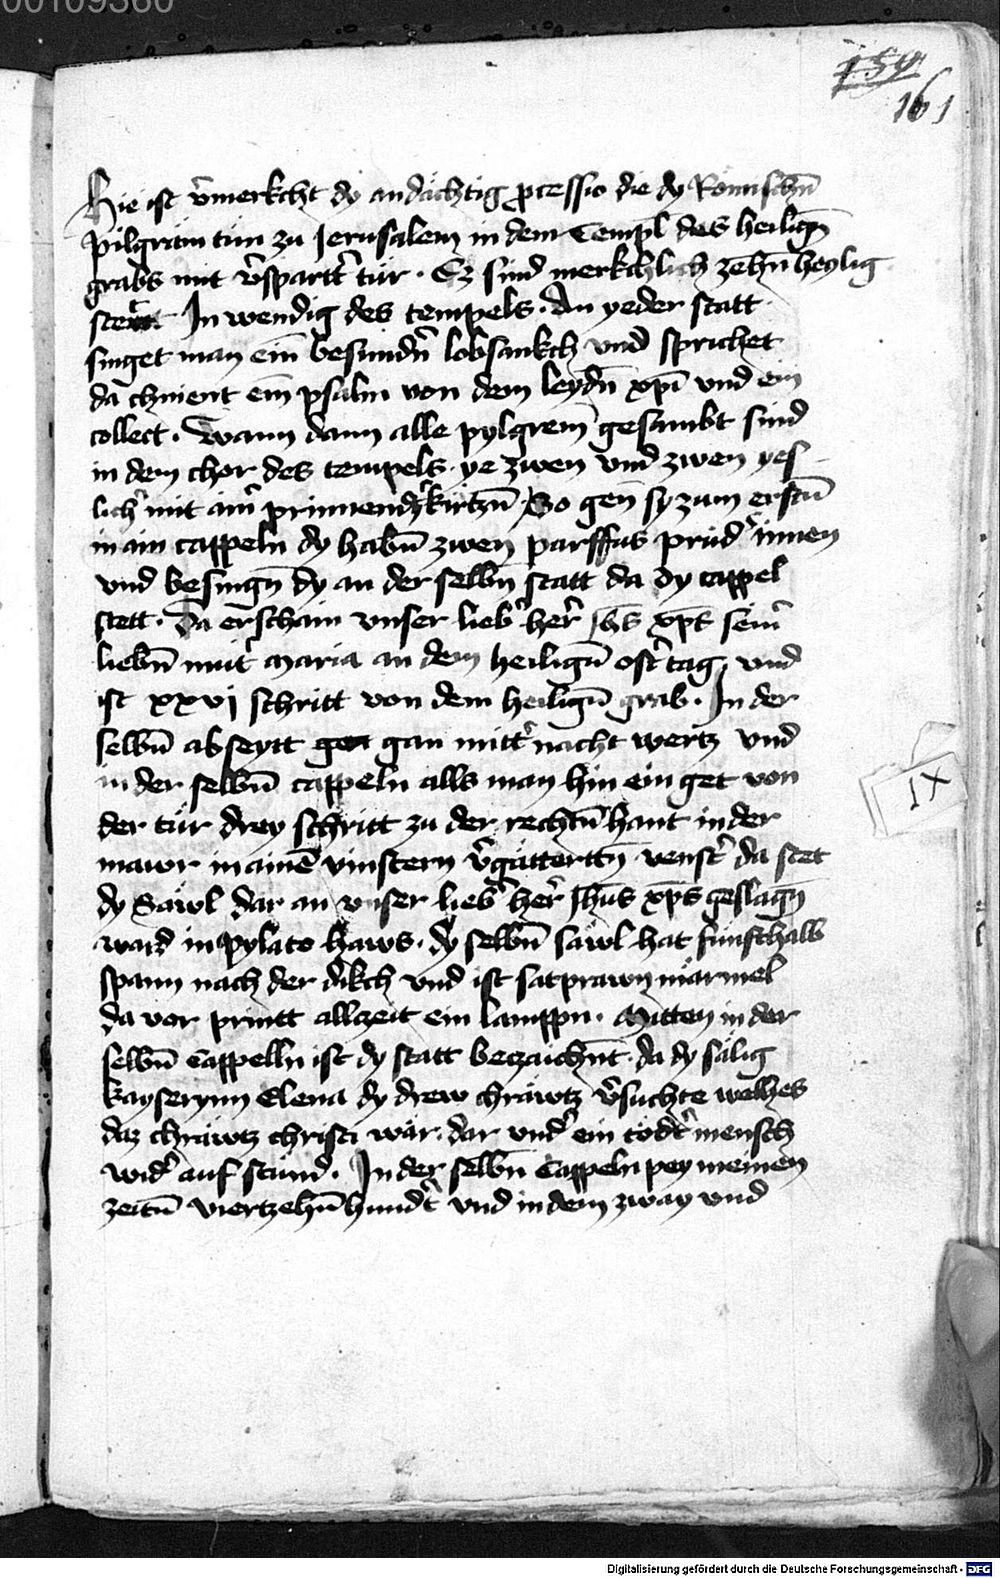 00109360
159
161
Hie ist v̄merkcht dy andächtig ꝓcessio die dy Römischn̄
pilgrim tun zu Jerusalem in dem Templ des heilign̄
grabs mit v̄sparttr̄ tür · Ez sind merkchlich zehn̄ heylig
stett In wendig des tempels · An yeder statt
singet man ein̄ besundn̄ lobsankch vnd sprichet
da chnient ein̄ psalm von dem leydn̄ xp̄i vnd ein
collect · Wann dann alle pylgrem̄ gesambt sind
in dem chor des tempels · ye zwen vnd zwen yes
lich̄ mit aim̄ prinnendn̄ kirtzn̄ / So gen̄ sy zum erstn̄
in ain cappeln dy habn̄ zwen parffus prud̄ innen
vnd besingn̄ dy an der selbn̄ statt da dy cappel
stett · Da erschain vnser lieb̄ her̄ Jhs̄ xp̄s seīr
liebn̄ mut̄ Maria an dem heilign̄ ost̄tag · vnd
ist xxvj schritt von dem heilign̄ grab · In der
selbn̄ abseytt gen gan mitt̄ nacht wertz vnd
in der selbn̄ cappeln alls man hin ein get von
der tür drey schritt zu der rechtn̄ hant in der
mawr in ainē vinstern v̄gättertn̄ venst̄ da stet
dy Säwl dar an vnser lieb̄ her̄ Jhūs xp̄s geslagn̄
ward in pylato haws · dy selbn̄ säwl hat funfthalb
spann nach der dikch vnd ist satprawn märmel
da vor printt allczeit ein lamppn · Mitten in der
selbn̄ Cappelln ist dy statt betzaichn̄t · da dy sälig
kayserynn Elena dy drew chräwtz v̄suchte welhes
daz chräwtz christi wär · dar vnd̄ ein todt̄ mensch
wid̄ auf stund · In der selbn̄ Cappeln pey meinen
zeitn̄ viertzehn̄ hund̄t vnd in dem zway vnd
IX
Digitalisierung gefördert durch die Deutsche Forschungsgemeinschaft · DFG